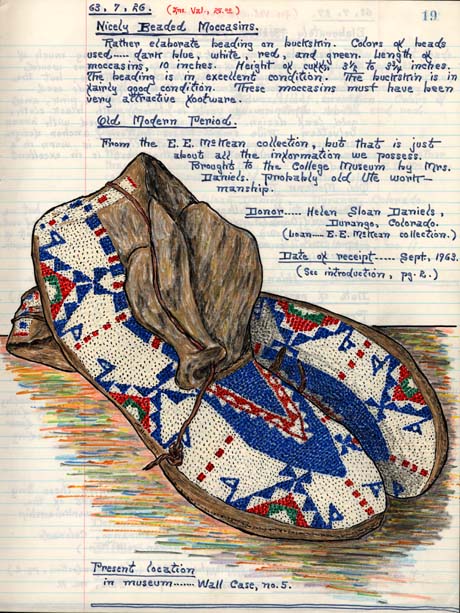 63, 7, 26. (Ins. Val., 25.00)
19
Nicely Beaded Moccasins.
Rather elaborate beading on buckskin. Colors of beads
used..... dark blue, white, red, and green. Length of
moccasins, 10 inches. Height of cuffs, 3½ to 3¾ inches.
The beading is in excellent condition. The buckskin is in
fairly good condition. These moccasins must have been
very attractive footware.
Old Modern Period.
From the E.E. McKean collection, but that is just
about all the information we possess.
Brought to the College Museum by Mrs.
Daniels. Probably old Ute work-
manship.
Donor..... Helen Sloan Daniels,
Durango, Colorado.
(loan.... E.E. McKean collection.)
Date of receipt..... Sept, 1963.
(See introduction, pg. 2.)
Present location
in museum...... Wall Case, no. 5.